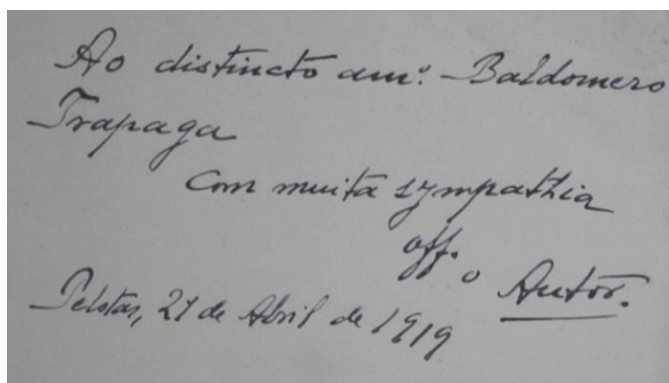 Ao distincto amº. Baldomero
Trapaga
Com muita sympathia
off.
o Autor.
Pelotas, 21 de Abril de 1919